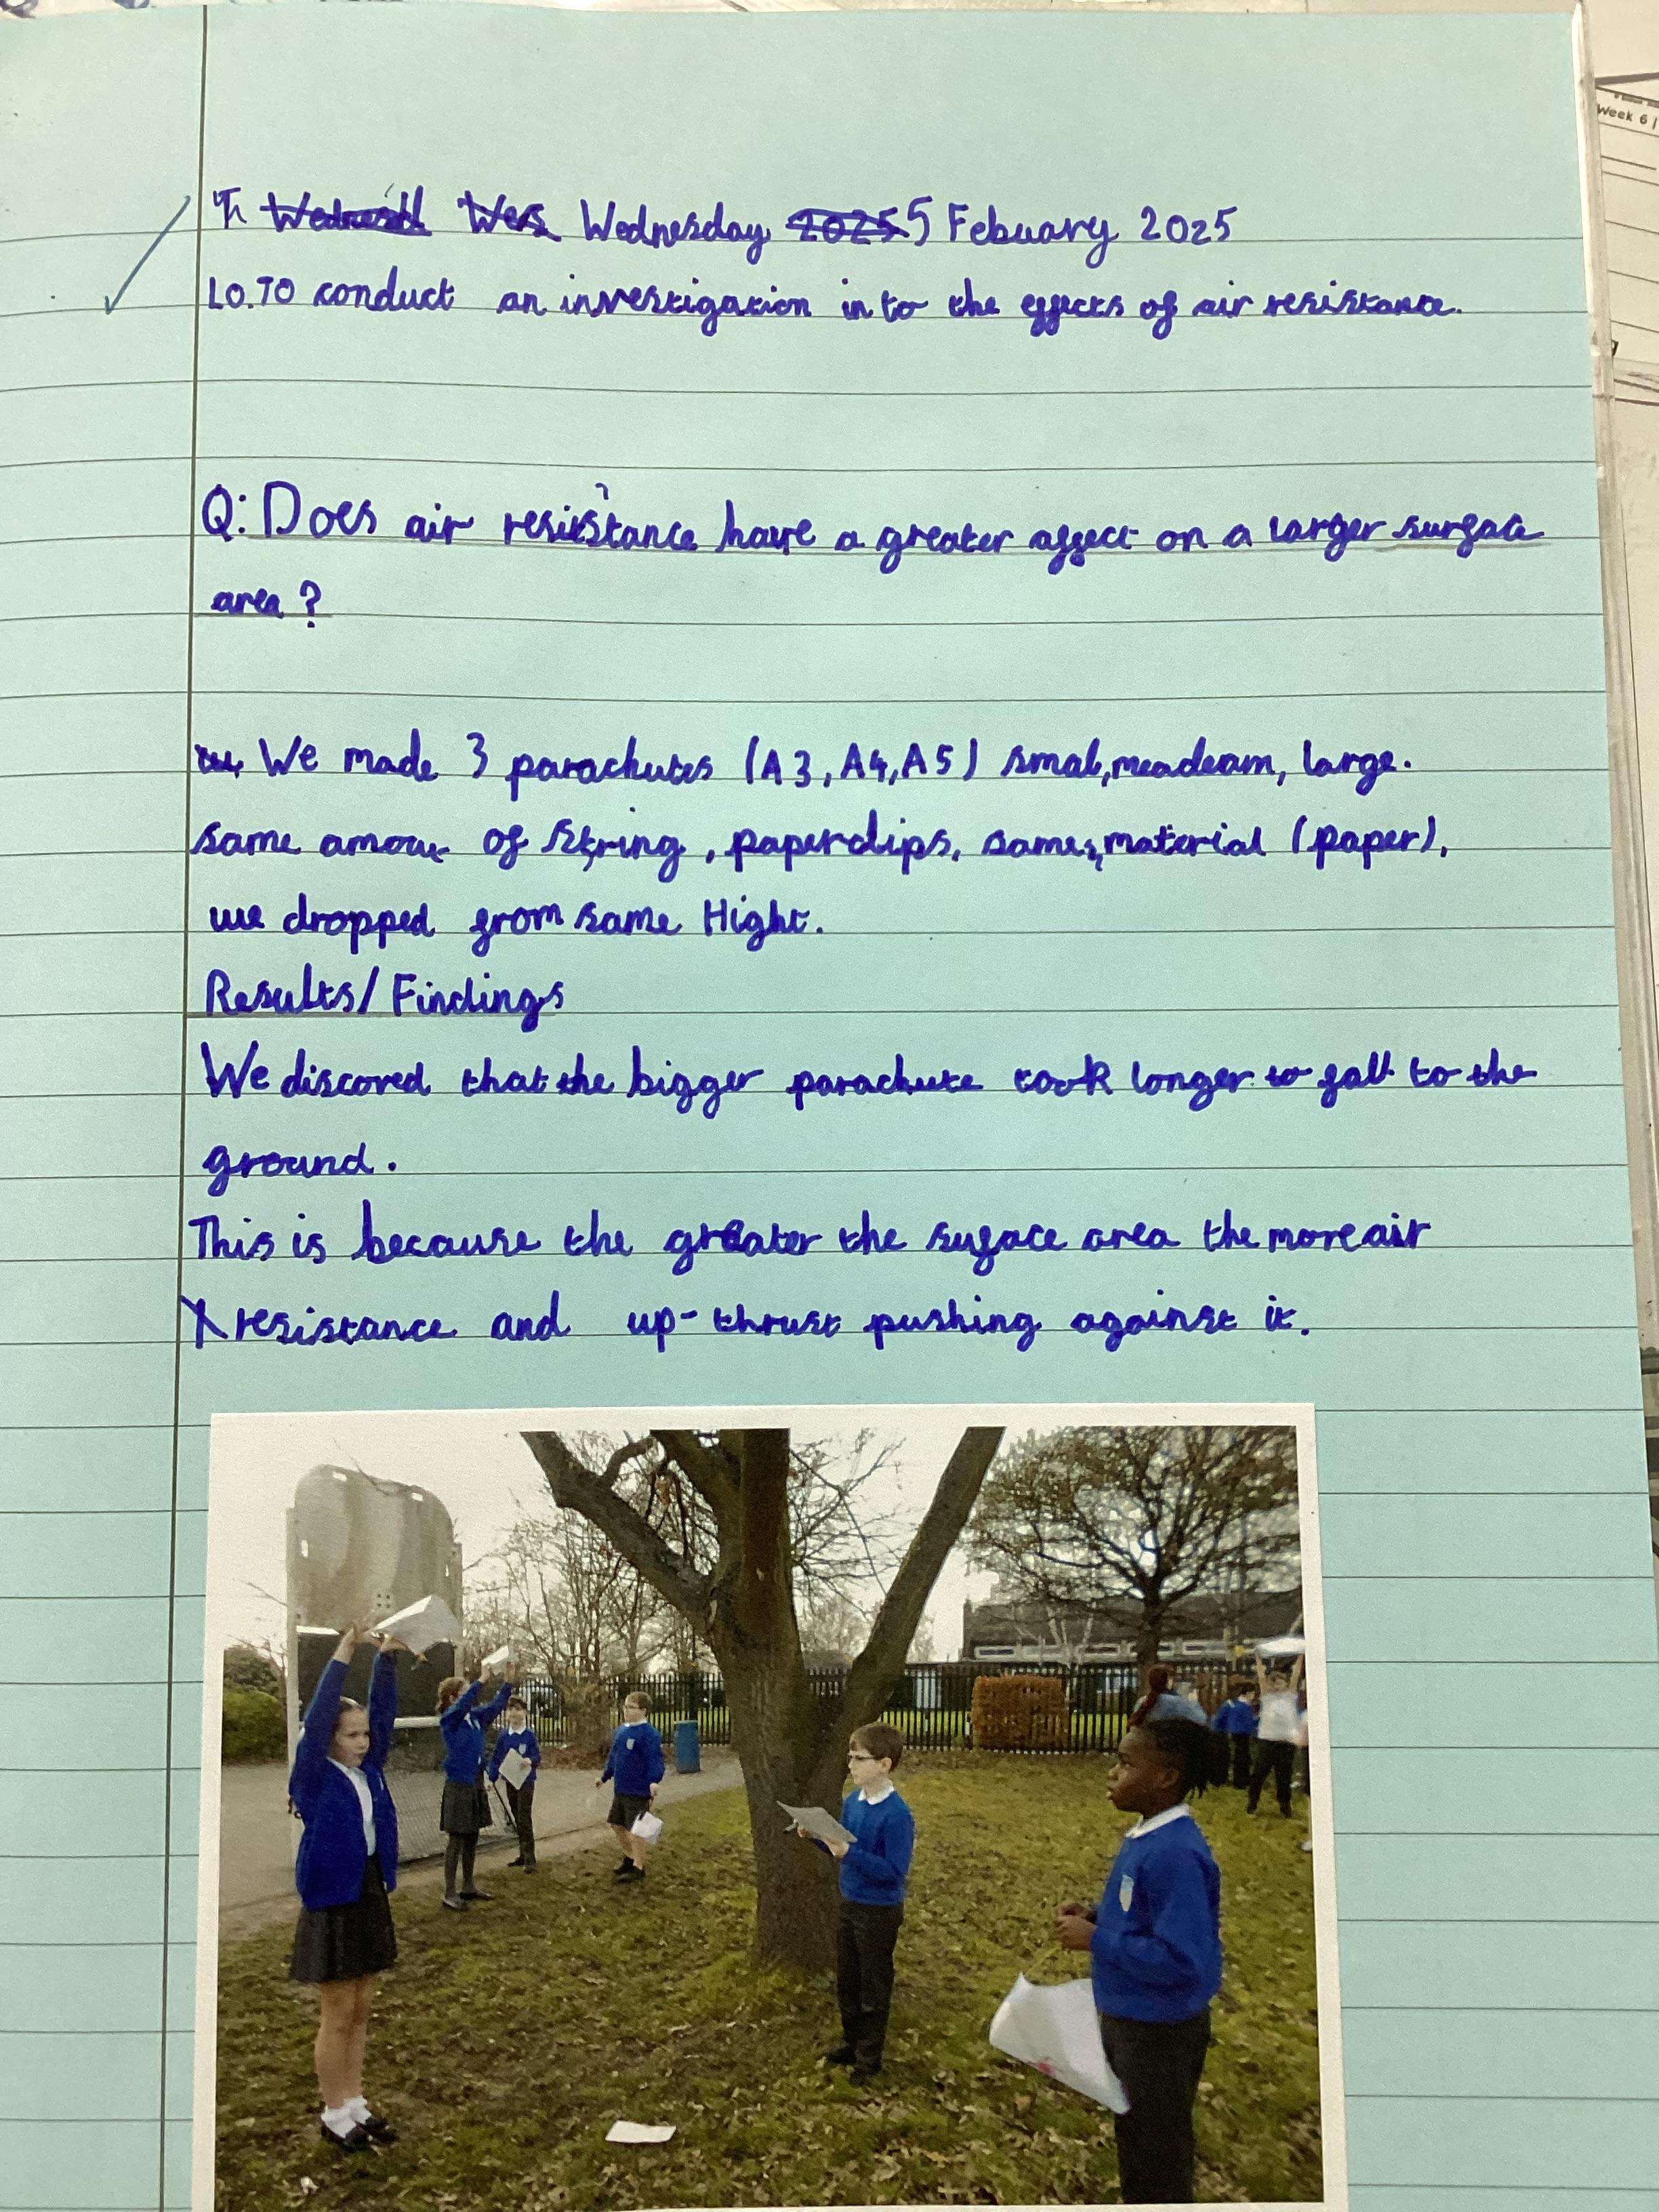 Wednesday 5 Febuary 2025
LO.TO conduct an investigation in to the effects of air resistance.
Q: Does air resistance have a greater affect on a larger surface
area?
We made 3 parachutes (A3, A4, A5) smal, meadeam, large.
same amout of string, paperclips, same, material (paper),
we dropped from same Hight.
Results/Findings
We discored that the bigger parachute took longer to fall to the
ground.
This is because the greater the suface area the more air
resistance and up-thrust pushing against it.
Week 6 |